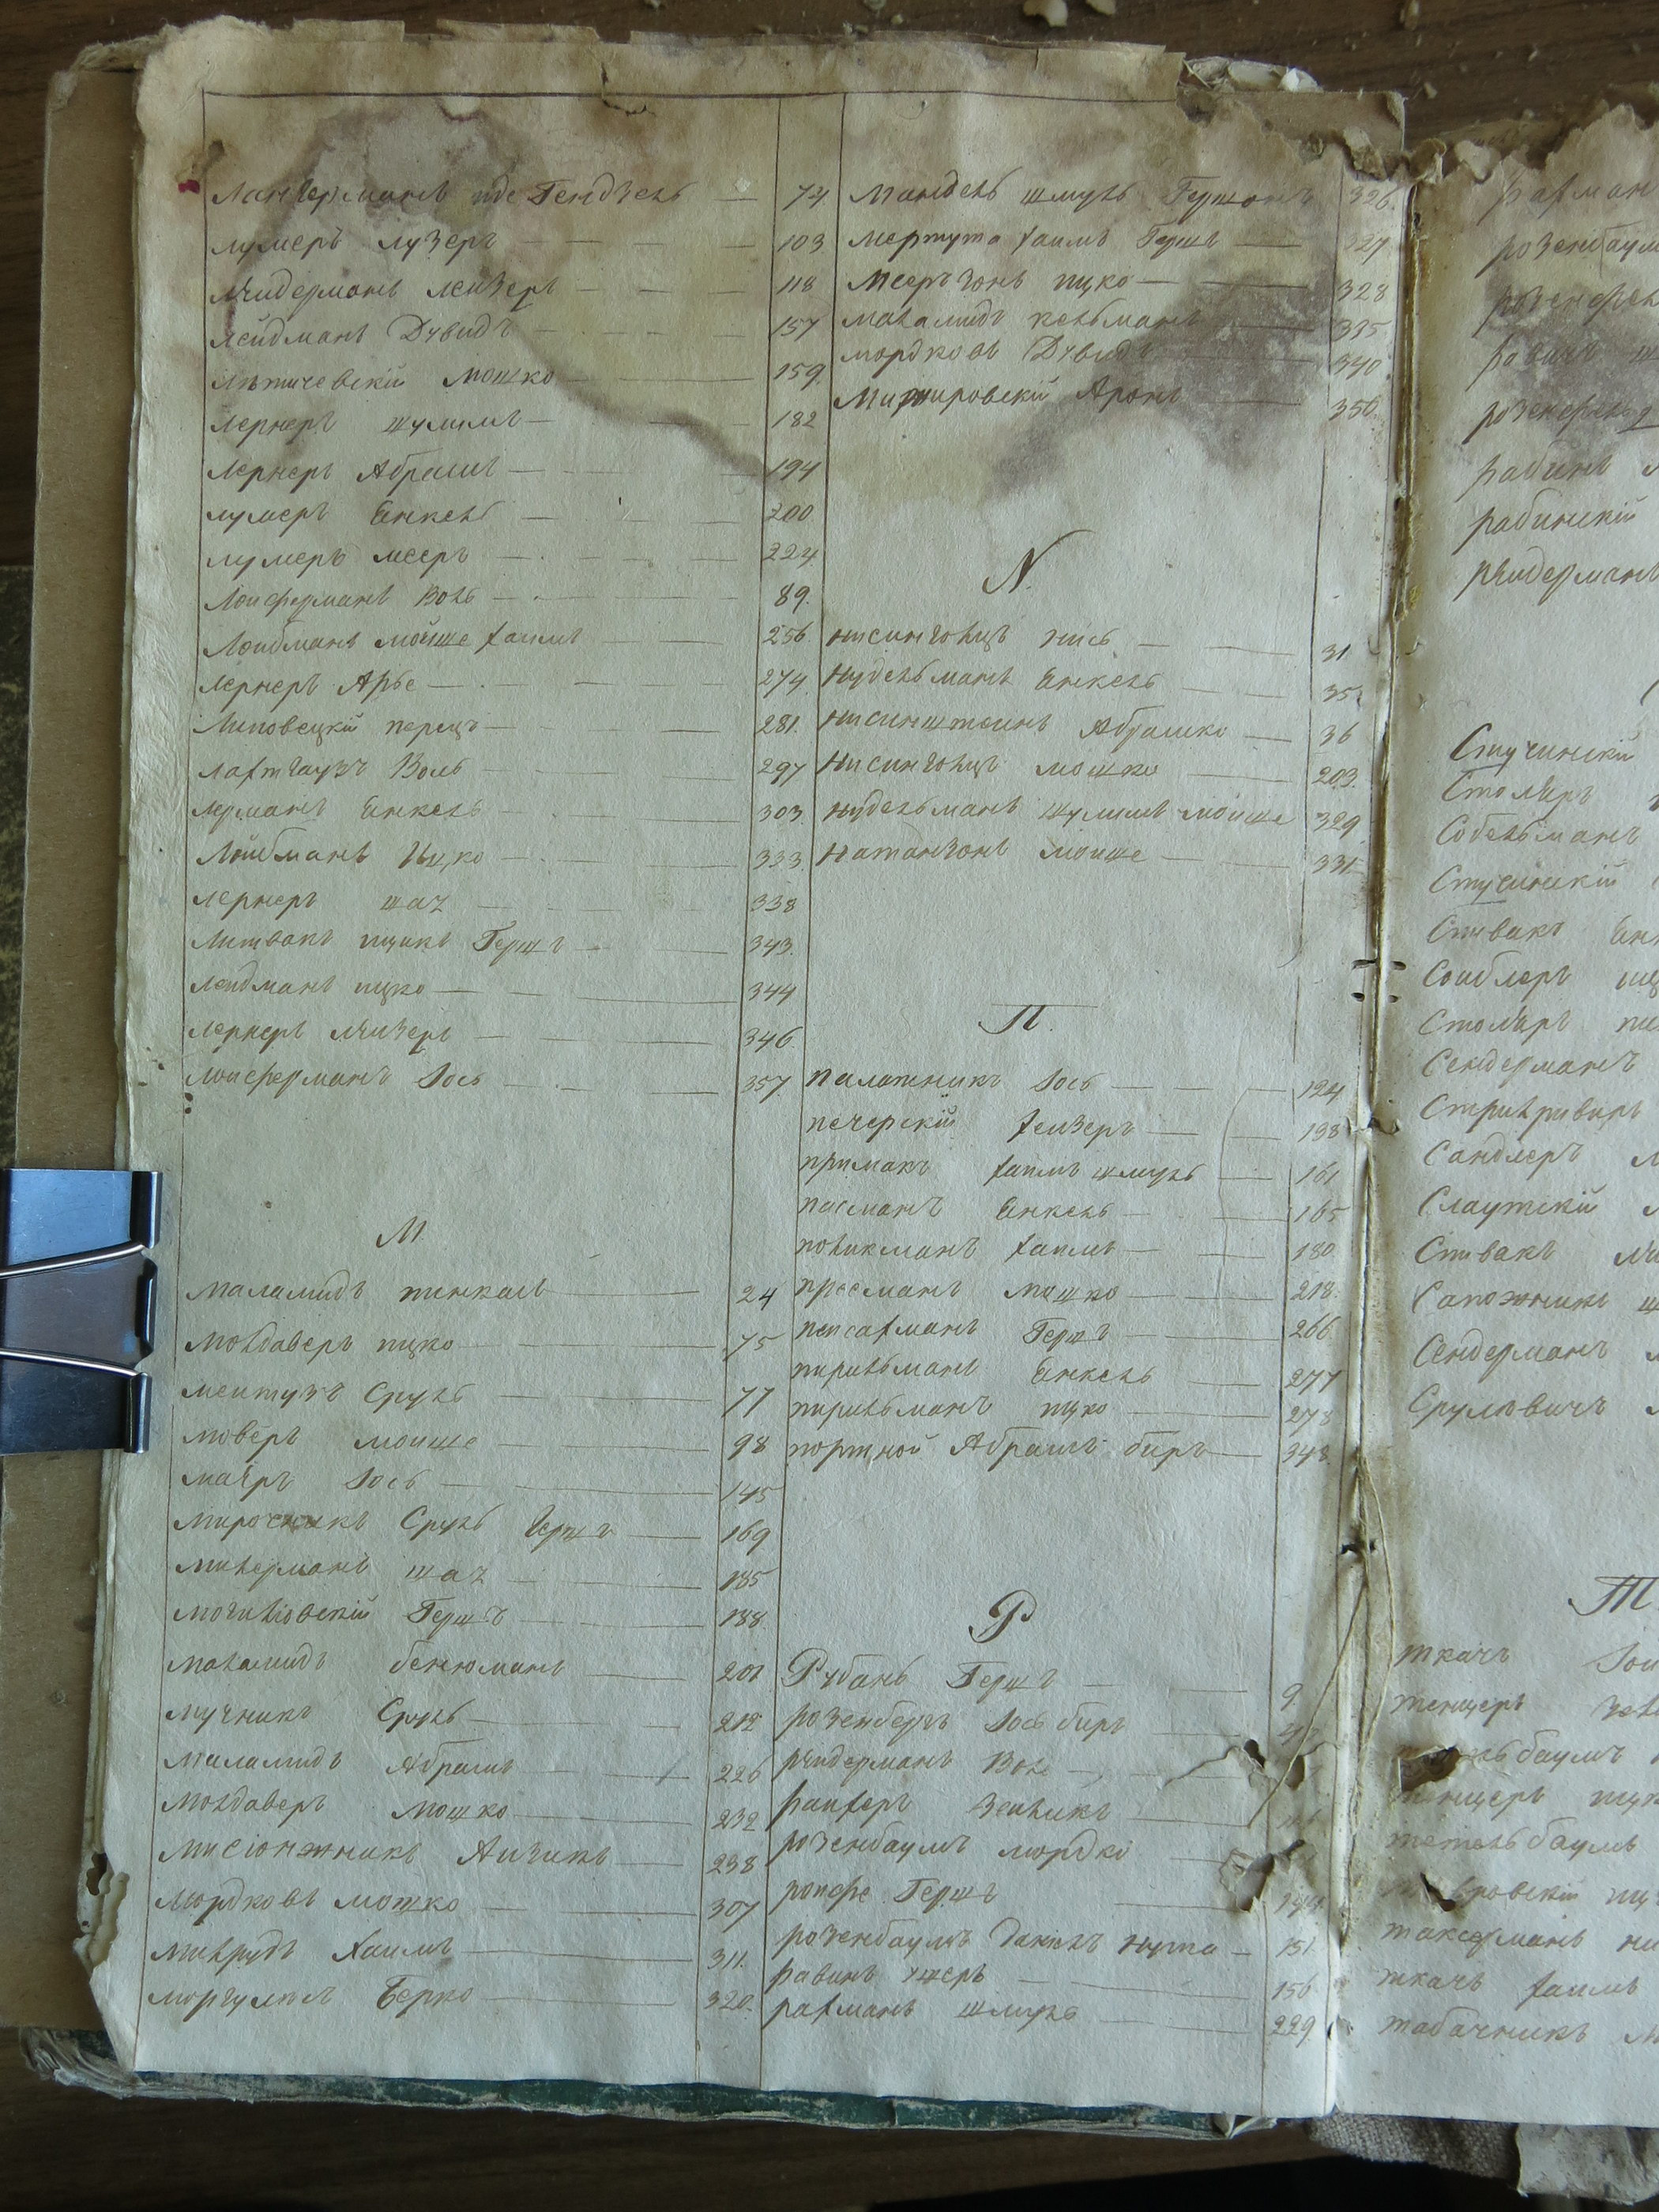 Лангерманъ Иде Гендзель 74
лумеръ лузеръ 103
лѣидерманъ лейзеръ 118
лейдманъ Дувидъ 157
лѣтичевскій Мошко 159.
лернеръ шулимъ 182
лернеръ Абрамъ 194
лумеръ Янкель 200
лумеръ мееръ 224
Лойферманъ Воль 89.
Лойбманъ мойше хаимъ 256
лернеръ Арье 274
Липовецкій перецъ 281.
лахтгаузъ Воль 297
лерманъ Янкель 303.
Лойбманъ Ицко 333.
лернеръ шая 338
литвакъ ицикъ Гершъ 343.
лейдманъ ицко 344
лернеръ лѣйзеръ 346.
лойферманъ Іось 357.
М.
маламидъ пинкасъ 24
молдаверъ ицко 75
ментузъ Сруль 77
моверъ мойше 98
маіеръ Іось 145
мирочникъ Сруль Гершъ 169
милерманъ шая 185
могилювскій Гершъ 188.
маламидъ бенюманъ 201
мучникъ Сруль 212
маламидъ Абрамъ 226
молдаверъ мошко 232
мисіонжникъ Айзикъ 238
мордковъ мошко 307
милрудъ Хаимъ 311.
моргулисъ Берко 320.
Мандель шмуль Гершонъ 326.
мертута хаимъ Гершъ 327
меерзонъ ицко 328
маламидъ кельманъ 335
мордковъ Дувидъ 340
Аронъ 350.
N.
нисингольцъ нись 31
нудельманъ Янкель 35.
нисинштейнъ Абрамко 36
нисингольцъ мошко 203.
нудельманъ шулимъ мойше 329
натанзонъ мойше 331
П.
палатникъ Іось 124
печерскій лейзеръ 138
примакъ хаимъ шмуль 161
пасманъ Янкель 165
поликманъ хаимъ 180.
пресманъ мошко 218.
пейсахманъ Гершъ 266.
пирильманъ Янкель 277
пирильманъ ицко 278
портной Абрамъ беръ 348.
Р
Рубанъ Гершъ 9.
розенбергъ Іось беръ
рѣидерманъ Воль
райхеръ Зейликъ
розенбаумъ мордко
ройфе Гершъ 144.
розенбаумъ Даниель нута 151.
равинъ ушеръ 156.
рахманъ шмуль 229
рахман
розенбаум
розенфель
рабинъ
рабинскій
рѣидерманъ
Стучинскій
Столяръ
Собельманъ
Стусинскій
Спивакъ Янк
Сойблеръ
Столяръ
Сендерманъ
Сандлеръ
Слаутскій
Спивакъ
Сапожникъ
Сендерманъ
Срулевичъ
Т.
ткачъ
тенцеръ
баумъ
тенцеръ
тетельбаумъ
таксерманъ
ткачъ хаимъ
табачникъ